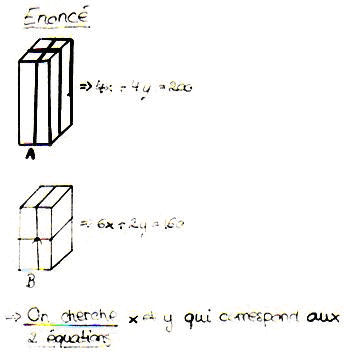 Énoncé
⇒ 4x + 4y = 200
A
⇒ 6x + 2y = 160
B
→ On cherche x et y qui correspond aux
2 équations